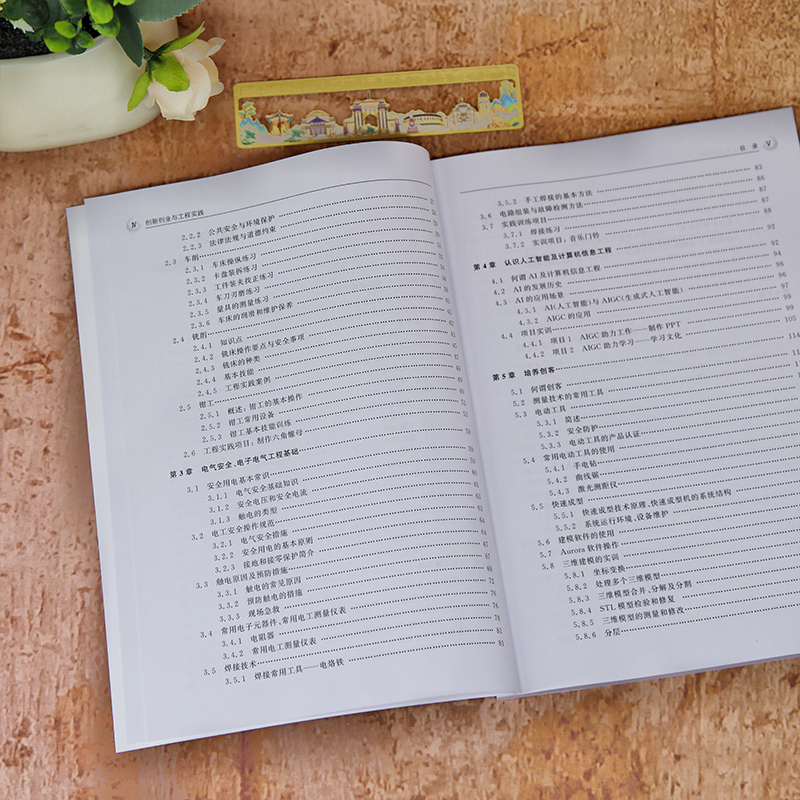 Ⅳ 创新创业与工程实践
2.2.2 公共安全与环境保护
2.2.3 法律法规与道德约束
2.3 车削
2.3.1 车床操纵练习
2.3.2 卡盘装拆练习
2.3.3 工件装夹找正练习
2.3.4 车刀刃磨练习
2.3.5 量具的测量练习
2.3.6 车床的润滑和维护保养
2.4 铣削
2.4.1 知识点
2.4.2 铣床操作要点与安全事项
2.4.3 铣床的种类
2.4.4 基本技能
2.4.5 工程实践案例
2.5 钳工
2.5.1 概述:钳工的基本操作
2.5.2 钳工常用设备
2.5.3 钳工基本技能训练
2.6 工程实践项目:制作六角螺母
第3章 电气安全、电子电气工程基础
3.1 安全用电基本常识
3.1.1 电气安全基础知识
3.1.2 安全电压和安全电流
3.1.3 触电的类型
3.2 电工安全操作规范
3.2.1 电气安全措施
3.2.2 安全用电的基本原则
3.2.3 接地和接零保护简介
3.3 触电原因及预防措施
3.3.1 触电的常见原因
3.3.2 预防触电的措施
3.3.3 现场急救
3.4 常用电子元器件、常用电工测量仪表
3.4.1 电阻器
3.4.2 常用电工测量仪表
3.5 焊接技术
3.5.1 焊接常用工具——电烙铁
目 录 Ⅴ
3.5.2 手工焊接的基本方法 85
3.6 电路组装与故障检测方法 86
3.7 实践训练项目 87
3.7.1 焊接练习 87
3.7.2 实训项目:音乐门铃 88
第4章 认识人工智能及计算机信息工程 92
4.1 何谓AI及计算机信息工程 92
4.2 AI的发展历史 94
4.3 AI的应用场景 96
4.3.1 AI(人工智能)与AIGC(生成式人工智能)
4.3.2 AIGC的应用
4.4 项目实训 99
4.4.1 项目1 AIGC助力工作——制作PPT 99
4.4.2 项目2 AIGC助力学习——学习文化 105
第5章 培养创客 114
5.1 何谓创客
5.2 测量技术的常用工具
5.3 电动工具
5.3.1 简述
5.3.2 安全防护
5.3.3 电动工具的产品认证
5.4 常用电动工具的使用
5.4.1 手电钻
5.4.2 曲线锯
5.4.3 激光测距仪
5.5 快速成型
5.5.1 快速成型技术原理、快速成型机的系统结构
5.5.2 系统运行环境、设备维护
5.6 建模软件的使用
5.7 Aurora软件操作
5.8 三维建模的实训
5.8.1 坐标变换
5.8.2 处理多个三维模型
5.8.3 三维模型合并、分解及分割
5.8.4 STL模型检验和修复
5.8.5 三维模型的测量和修改
5.8.6 分层